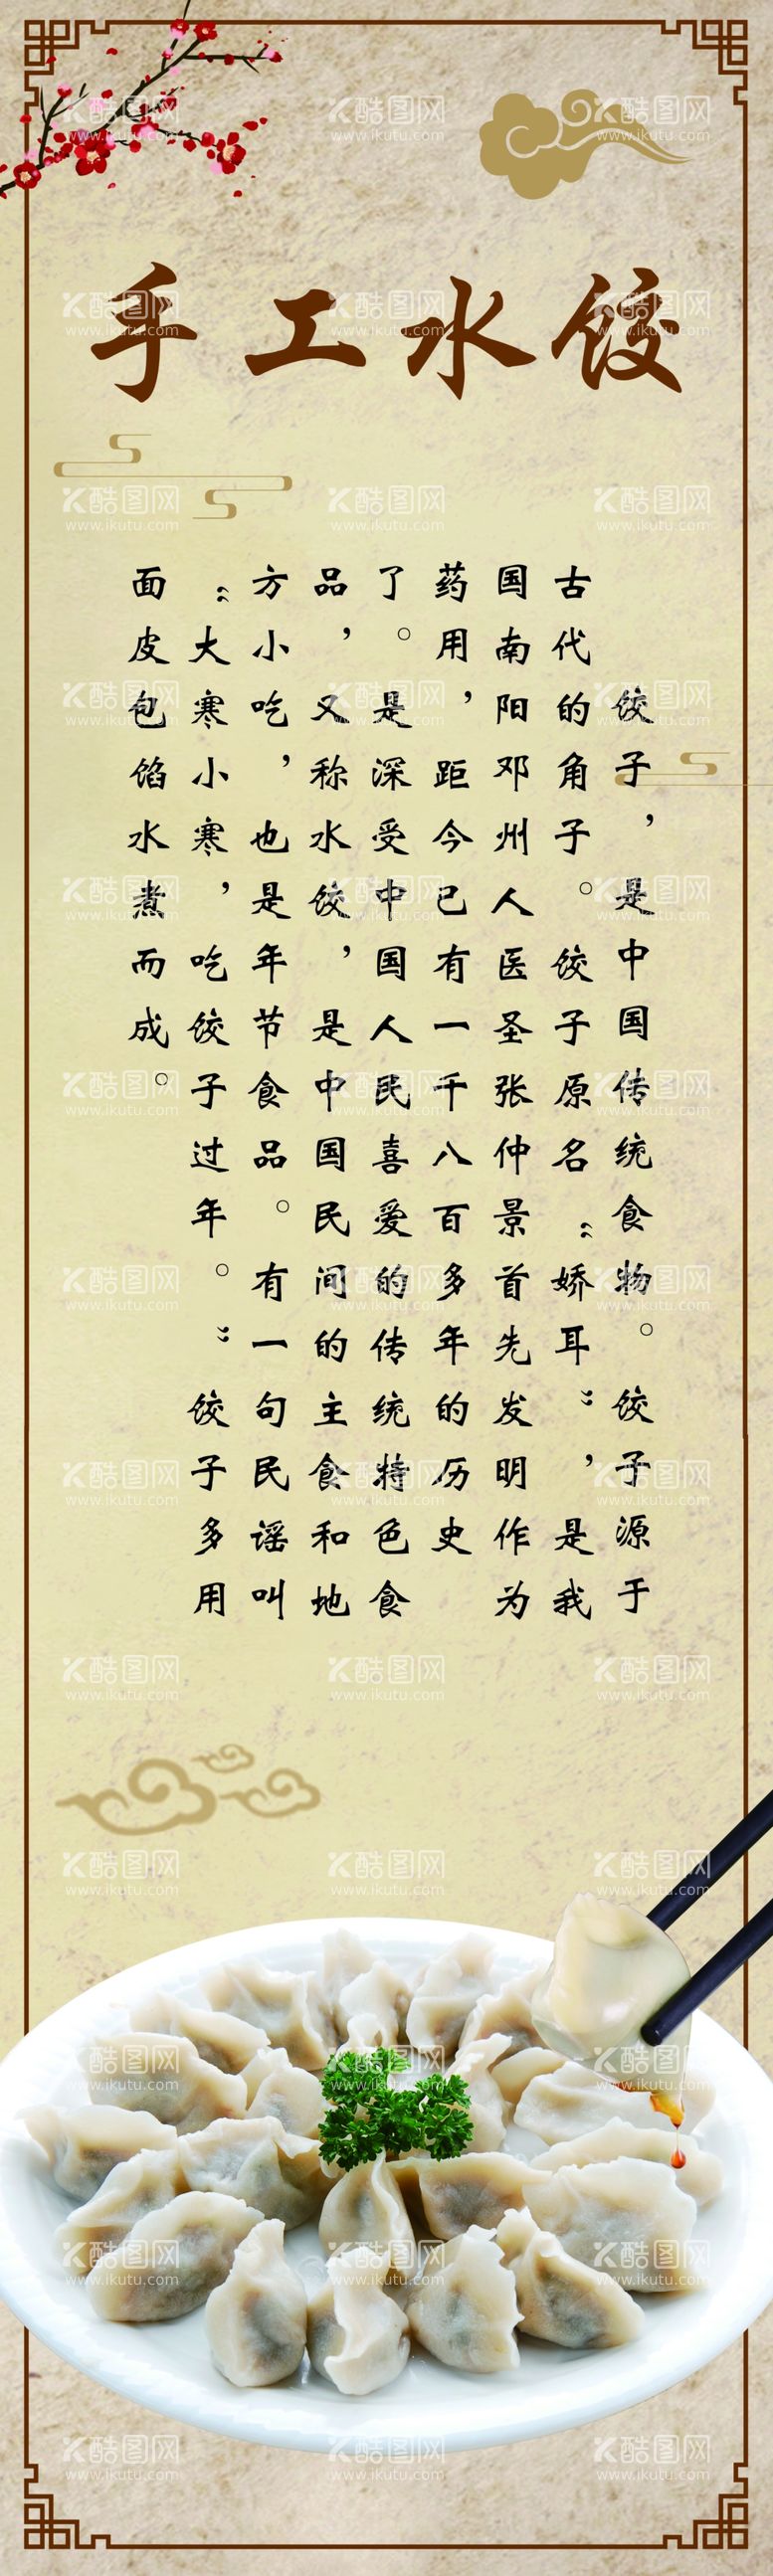 手工水饺
饺子，是中国传统食物。饺子源于
古代的角子。饺子原名“娇耳”，是我
国南阳邓州人医圣张仲景首先发明作为
药用，距今已有一千八百多年的历史
了。是深受中国人民喜爱的传统特色食
品，又称水饺，是中国民间的主食和地
方小吃，也是年节食品。有一句民谣叫
“大寒小寒，吃饺子过年。”饺子多用
面皮包馅水煮而成。
酷图网
www.ikutu.com